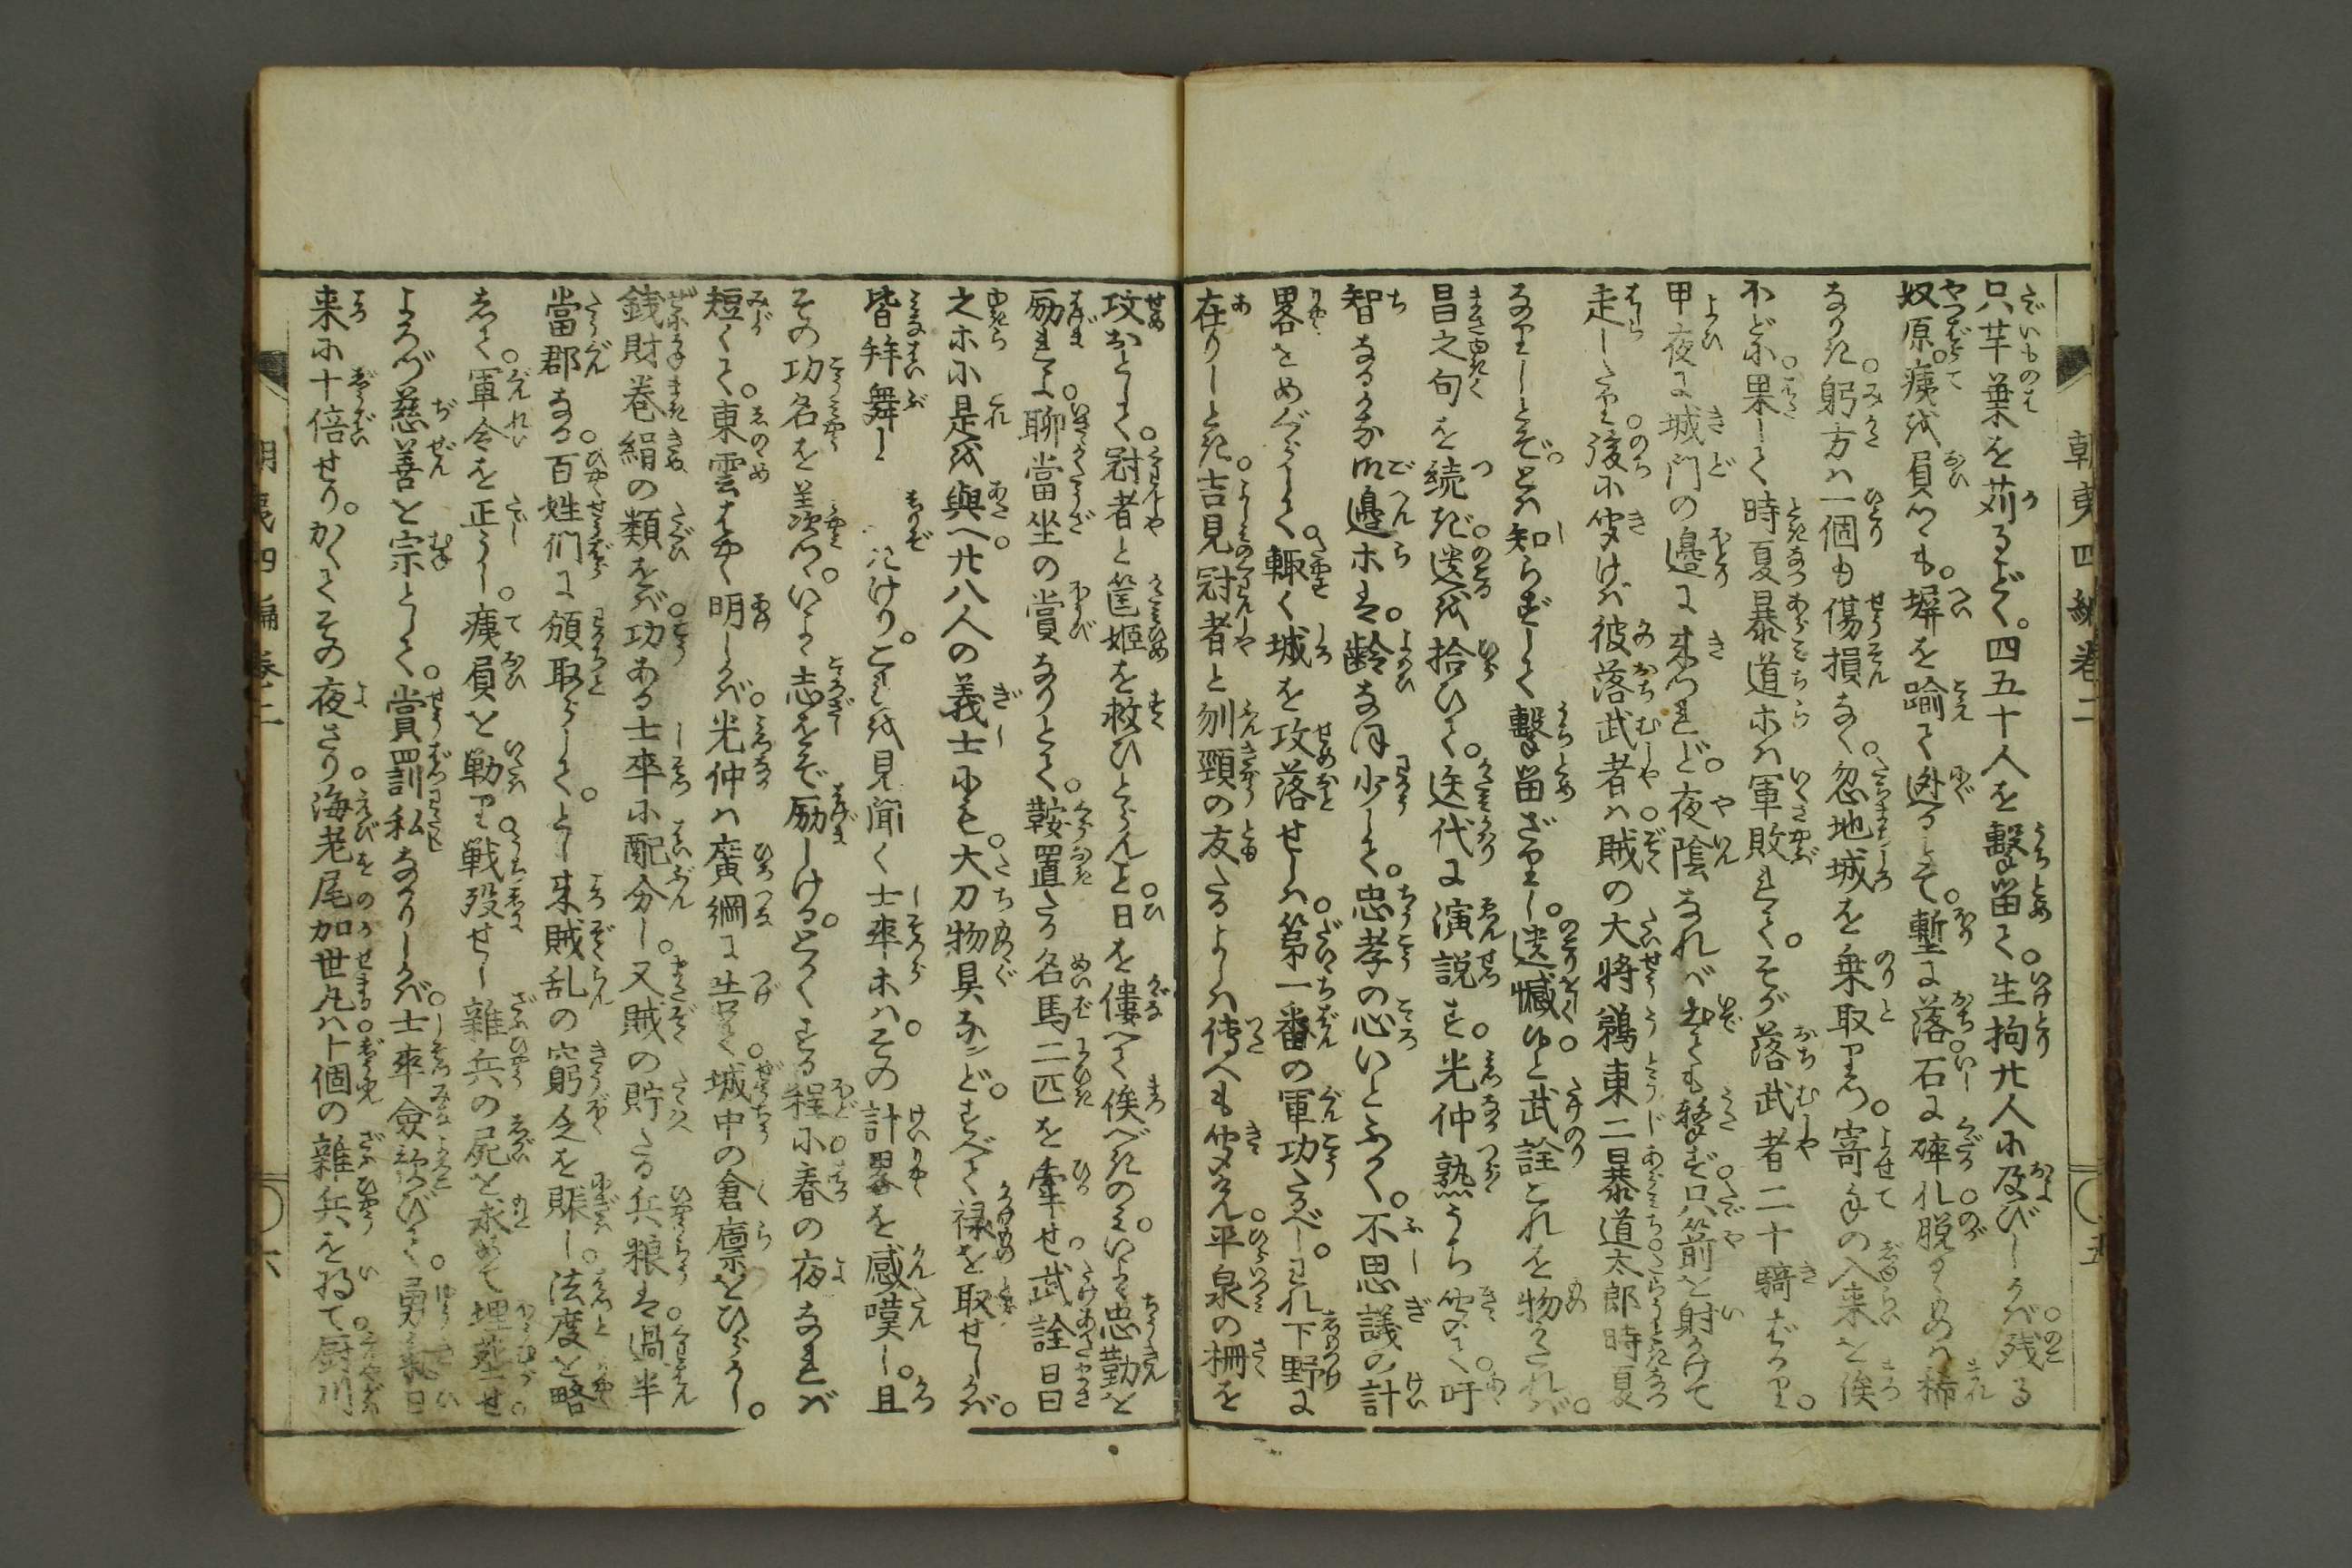 朝夷四編巻二
五
只芋葉を苅るごとく。四五十人を撃留て。生拘廿人に及びしかば。残る
奴原。痍を負つゝも。塀を踰て迯るとて。塹に落。石に碎れ脱るゝものは稀
なりき。躬方は一個も傷損なく。忽地城を乗取りつ。寄手の入来を俟
ほどに。果して時夏暴道ホは軍敗れて。そが落武者二十騎ばかり。
甲夜に城門の邊に来つれど。夜陰なれば出ても撃ず。只箭を射かけて
走らしたり。後に聞けば彼落武者は。賊の大将鵜東二暴道。太郎時夏
なりしとぞ。とは知らずして撃留ざりし。遺憾さよと武詮これを物がたれば。
昌之句を続ぎ。遺を拾ひて。迭代に演説す。光仲熟うち聞て。吁
智なるかな御邊ホは。齢なほ少して。忠孝の心いとふかく。不思議の計
畧をめぐらして。輙く城を攻落せしは。第一番の軍功たるべし。われ下野に
在りしとき。吉見冠者と刎頸の友たるよしは傳へも聞けん。平泉の柵を
攻おとして。冠者と筐姫を救ひとらんと。日を僂へて俟べきのみ。いよゝ忠勤を
励れよ。聊當坐の賞なりとて。鞍置たる名馬二匹を牽せ。武詮昌
之ホに是を與へ。廿八人の義士にも。大刀物具など。すべて禄を取せしかば。
皆拜舞し
退きけり。これを見聞く士卒ホは。その計畧を感嘆し。且
その功名を羨つゝ。いよゝ志をぞ励しける。とかくする程に。春の夜なれば
短くて。東雲はやく明しかば。光仲は廣綱に告て。城中の倉廩をひらかし。
銭財巻絹の類をば。功ある士卒に配分し。又賊の貯たる兵粮は。過半
當郡なる。百姓們に頒取らして。年来賊乱の窮乏を賑し。法度を略
して。軍令を正うし。痍負を勦り。戦歿せし雜兵の屍を求めて埋葬せ。
よろづ慈善を宗として。賞罰私なかりしかば。士卒僉歓びて。勇氣日
来に十倍せり。かくてその夜さり。海老尾加世丸は。十個の雜兵を将て。厨川
朝夷四編巻二
六